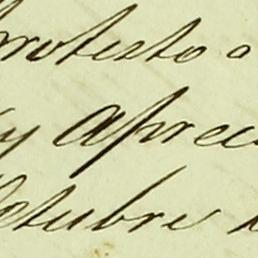 protesto a
y aprec
Octubre